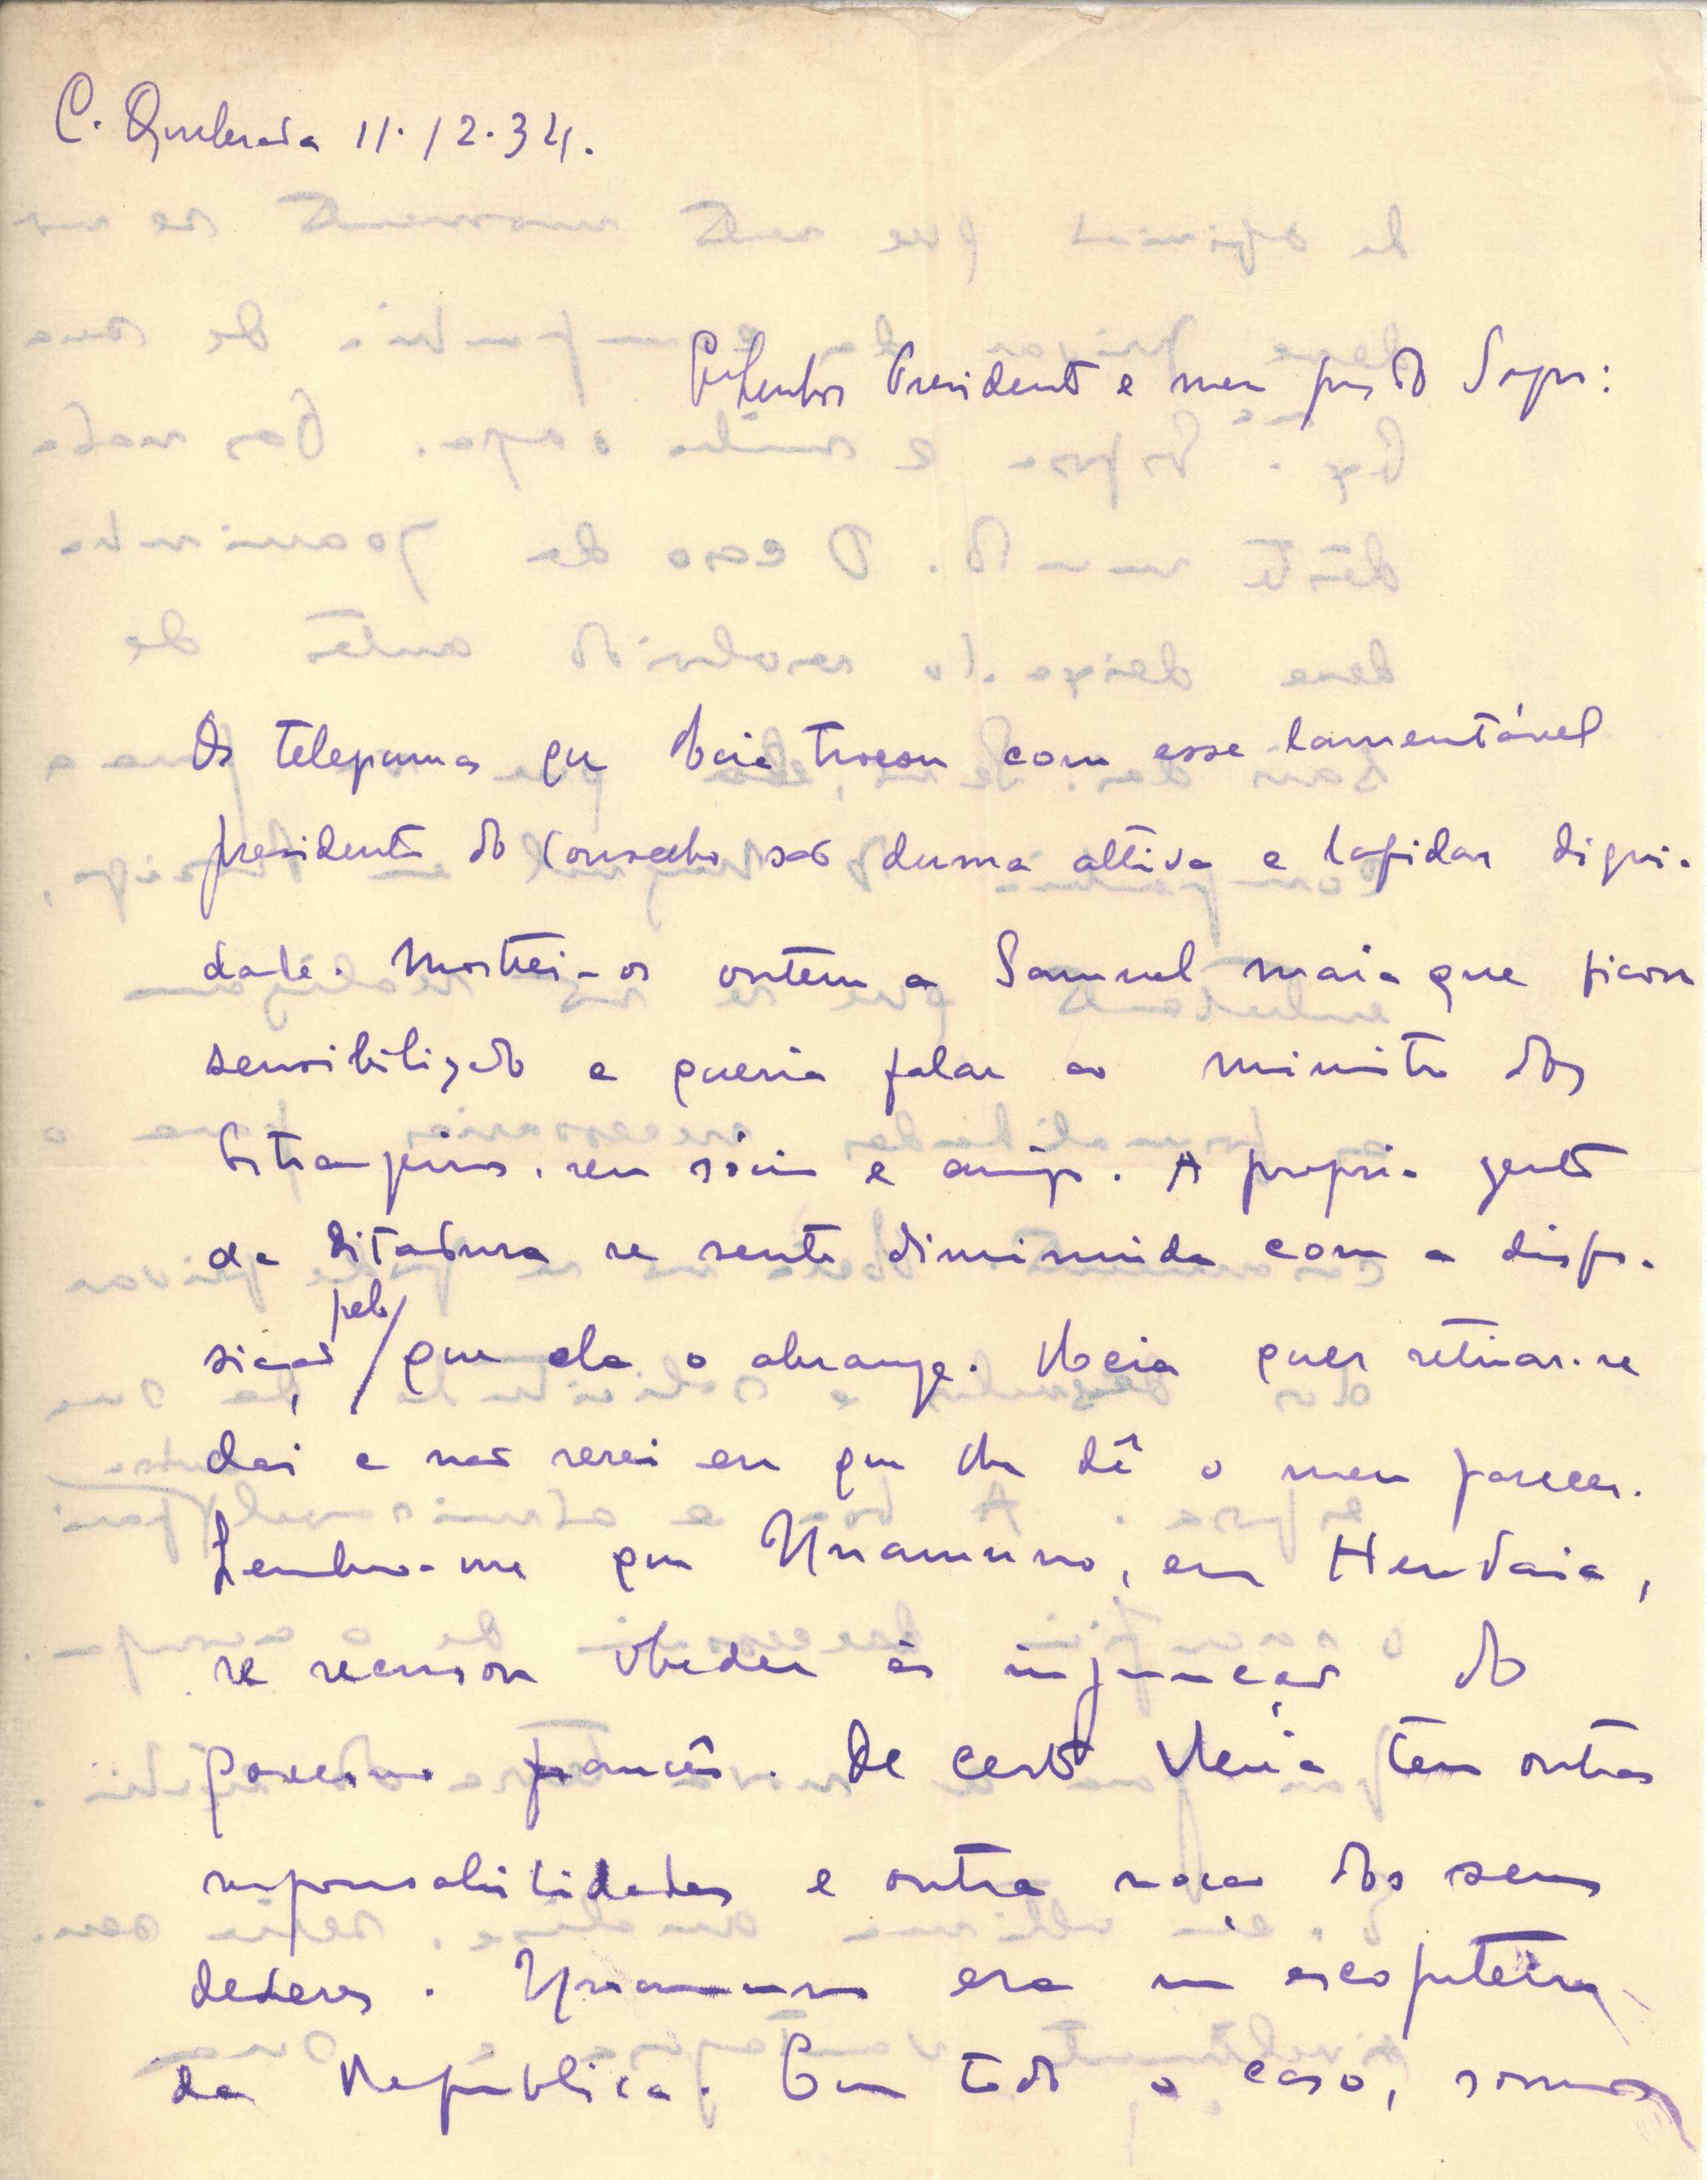 C. Quebrada 11.12.34.
Presidente e meu
Os telegramas que trocou com esse lamentável
presidente do Conselho são duma altiva e lapidar digni-
dade. Mostrei-os ontem a Samuel Maia que ficou
sensibilizado e queria falar ao ministro dos
Estrangeiros, seu sócio e amigo. A propria gente
da ditadura se sente diminuida com a dispo-
sição pelo que ela o abrange. quer retirar-se
dai e não serei eu que lhe dê o meu parecer.
Lembro-me que Unamuno, em Hendaia,
se recusou obedecer ás injunções do
governo francês. De certo tem outras
responsabilidades e outra noção dos seus
deveres. Unamuno era um escopeteiro
da Republica. Em todo o caso, somos